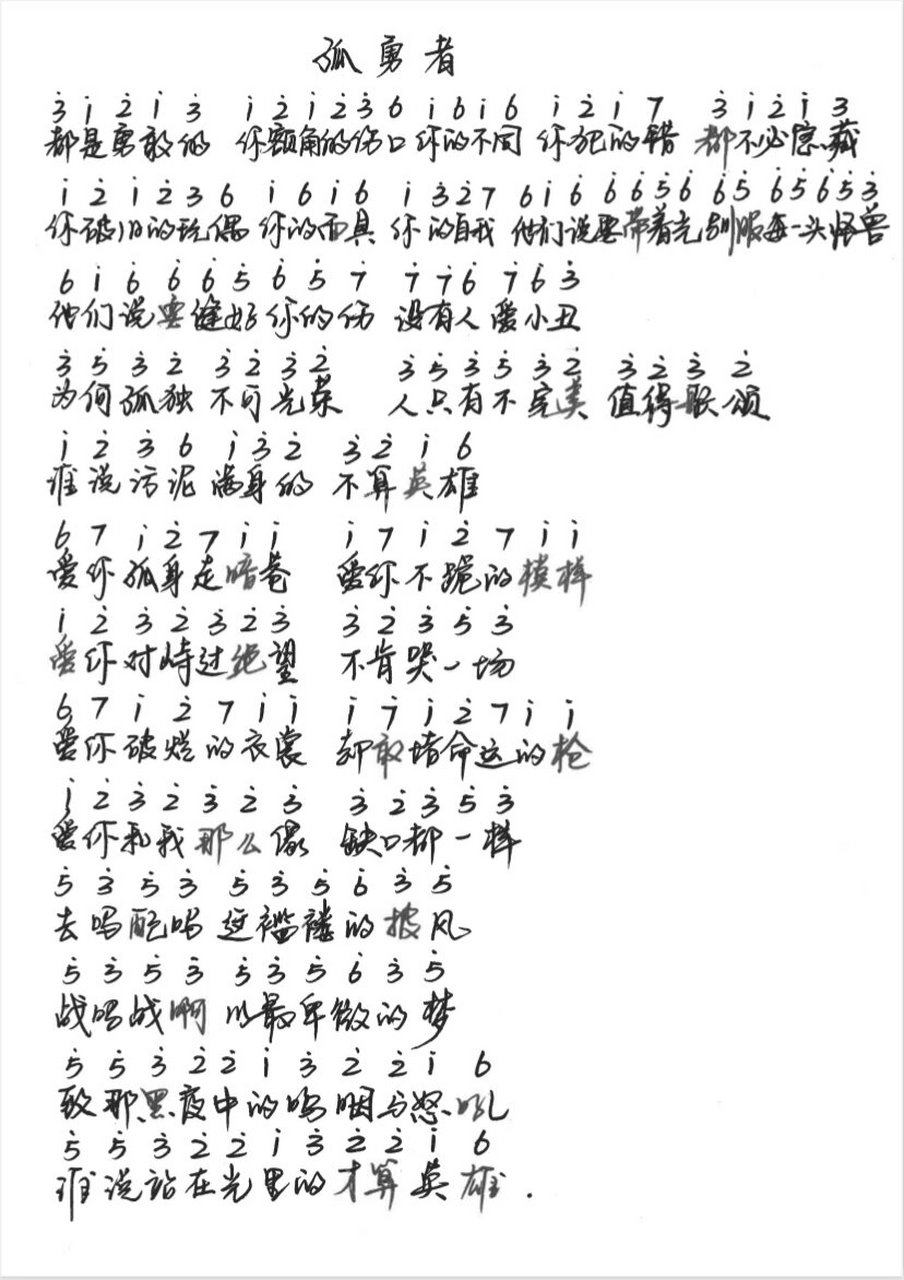 孤勇者
3̇ 1̇ 2̇ 1̇ 3̇ 1̇ 2̇ 1̇ 2̇ 3̇ 6 1̇ 6 1̇ 6 1̇ 2̇ 1̇ 7 3̇ 1̇ 2̇ 1̇ 3̇
都是勇敢的 你额角的伤口 你的不同 你犯的错 都不必隐藏
1̇ 2̇ 1̇ 2̇ 3̇ 6 1̇ 6 1̇ 6 1̇ 3̇ 2̇ 7 6 1̇ 6 6̇ 6̇ 5̇ 6̇ 6̇ 5̇ 6̇ 5̇ 6̇ 5̇ 3̇
你破旧的玩偶 你的面具 你的自我 他们说要带着光 驯服每一头怪兽
6 1̇ 6 6̇ 6̇ 5̇ 6̇ 5̇ 7̇ 7̇ 7̇ 6̇ 7̇ 6̇ 3̇
他们说要缝好你的伤 没有人爱小丑
3̇ 5̇ 3̇ 2̇ 3̇ 2̇ 3̇ 2̇ 3̇ 5̇ 3̇ 5̇ 3̇ 2̇ 3̇ 2̇ 3̇ 2̇
为何孤独 不可光荣 人只有不完美 值得歌颂
1̇ 2̇ 3̇ 6 1̇ 3̇ 2̇ 3̇ 2̇ 1̇ 6
谁说污泥满身的 不算英雄
6 7 1̇ 2̇ 7 1̇ 1̇ 1̇ 7 1̇ 2̇ 7 1̇ 1̇
爱你孤身走暗巷 爱你不跪的模样
1̇ 2̇ 3̇ 2̇ 3̇ 2̇ 3̇ 3̇ 2̇ 3̇ 5̇ 3̇
爱你对峙过绝望 不肯哭一场
6 7 1̇ 2̇ 7 1̇ 1̇ 1̇ 7̇ 1̇ 2̇ 7 1̇ 1̇
爱你破烂的衣裳 却敢堵命运的枪
1̇ 2̇ 3̇ 2̇ 3̇ 2̇ 3̇ 3̇ 2̇ 3̇ 5̇ 3̇
爱你和我那么像 缺口都一样
5̇ 3̇ 5̇ 3̇ 5̇ 3̇ 5̇ 6̇ 3̇ 5̇
去吗 配吗 这褴褛的披风
5̇ 3̇ 5̇ 3̇ 5̇ 3̇ 5̇ 6̇ 3̇ 5̇
战吗战啊 以最卑微的梦
5̇ 5̇ 3̇ 2̇ 2̇ 1̇ 3̇ 2̇ 2̇ 1̇ 6
致那黑夜中的呜咽与怒吼
5̇ 5̇ 3̇ 2̇ 2̇ 1̇ 3̇ 2̇ 2̇ 1̇ 6
谁说站在光里的才算英雄.